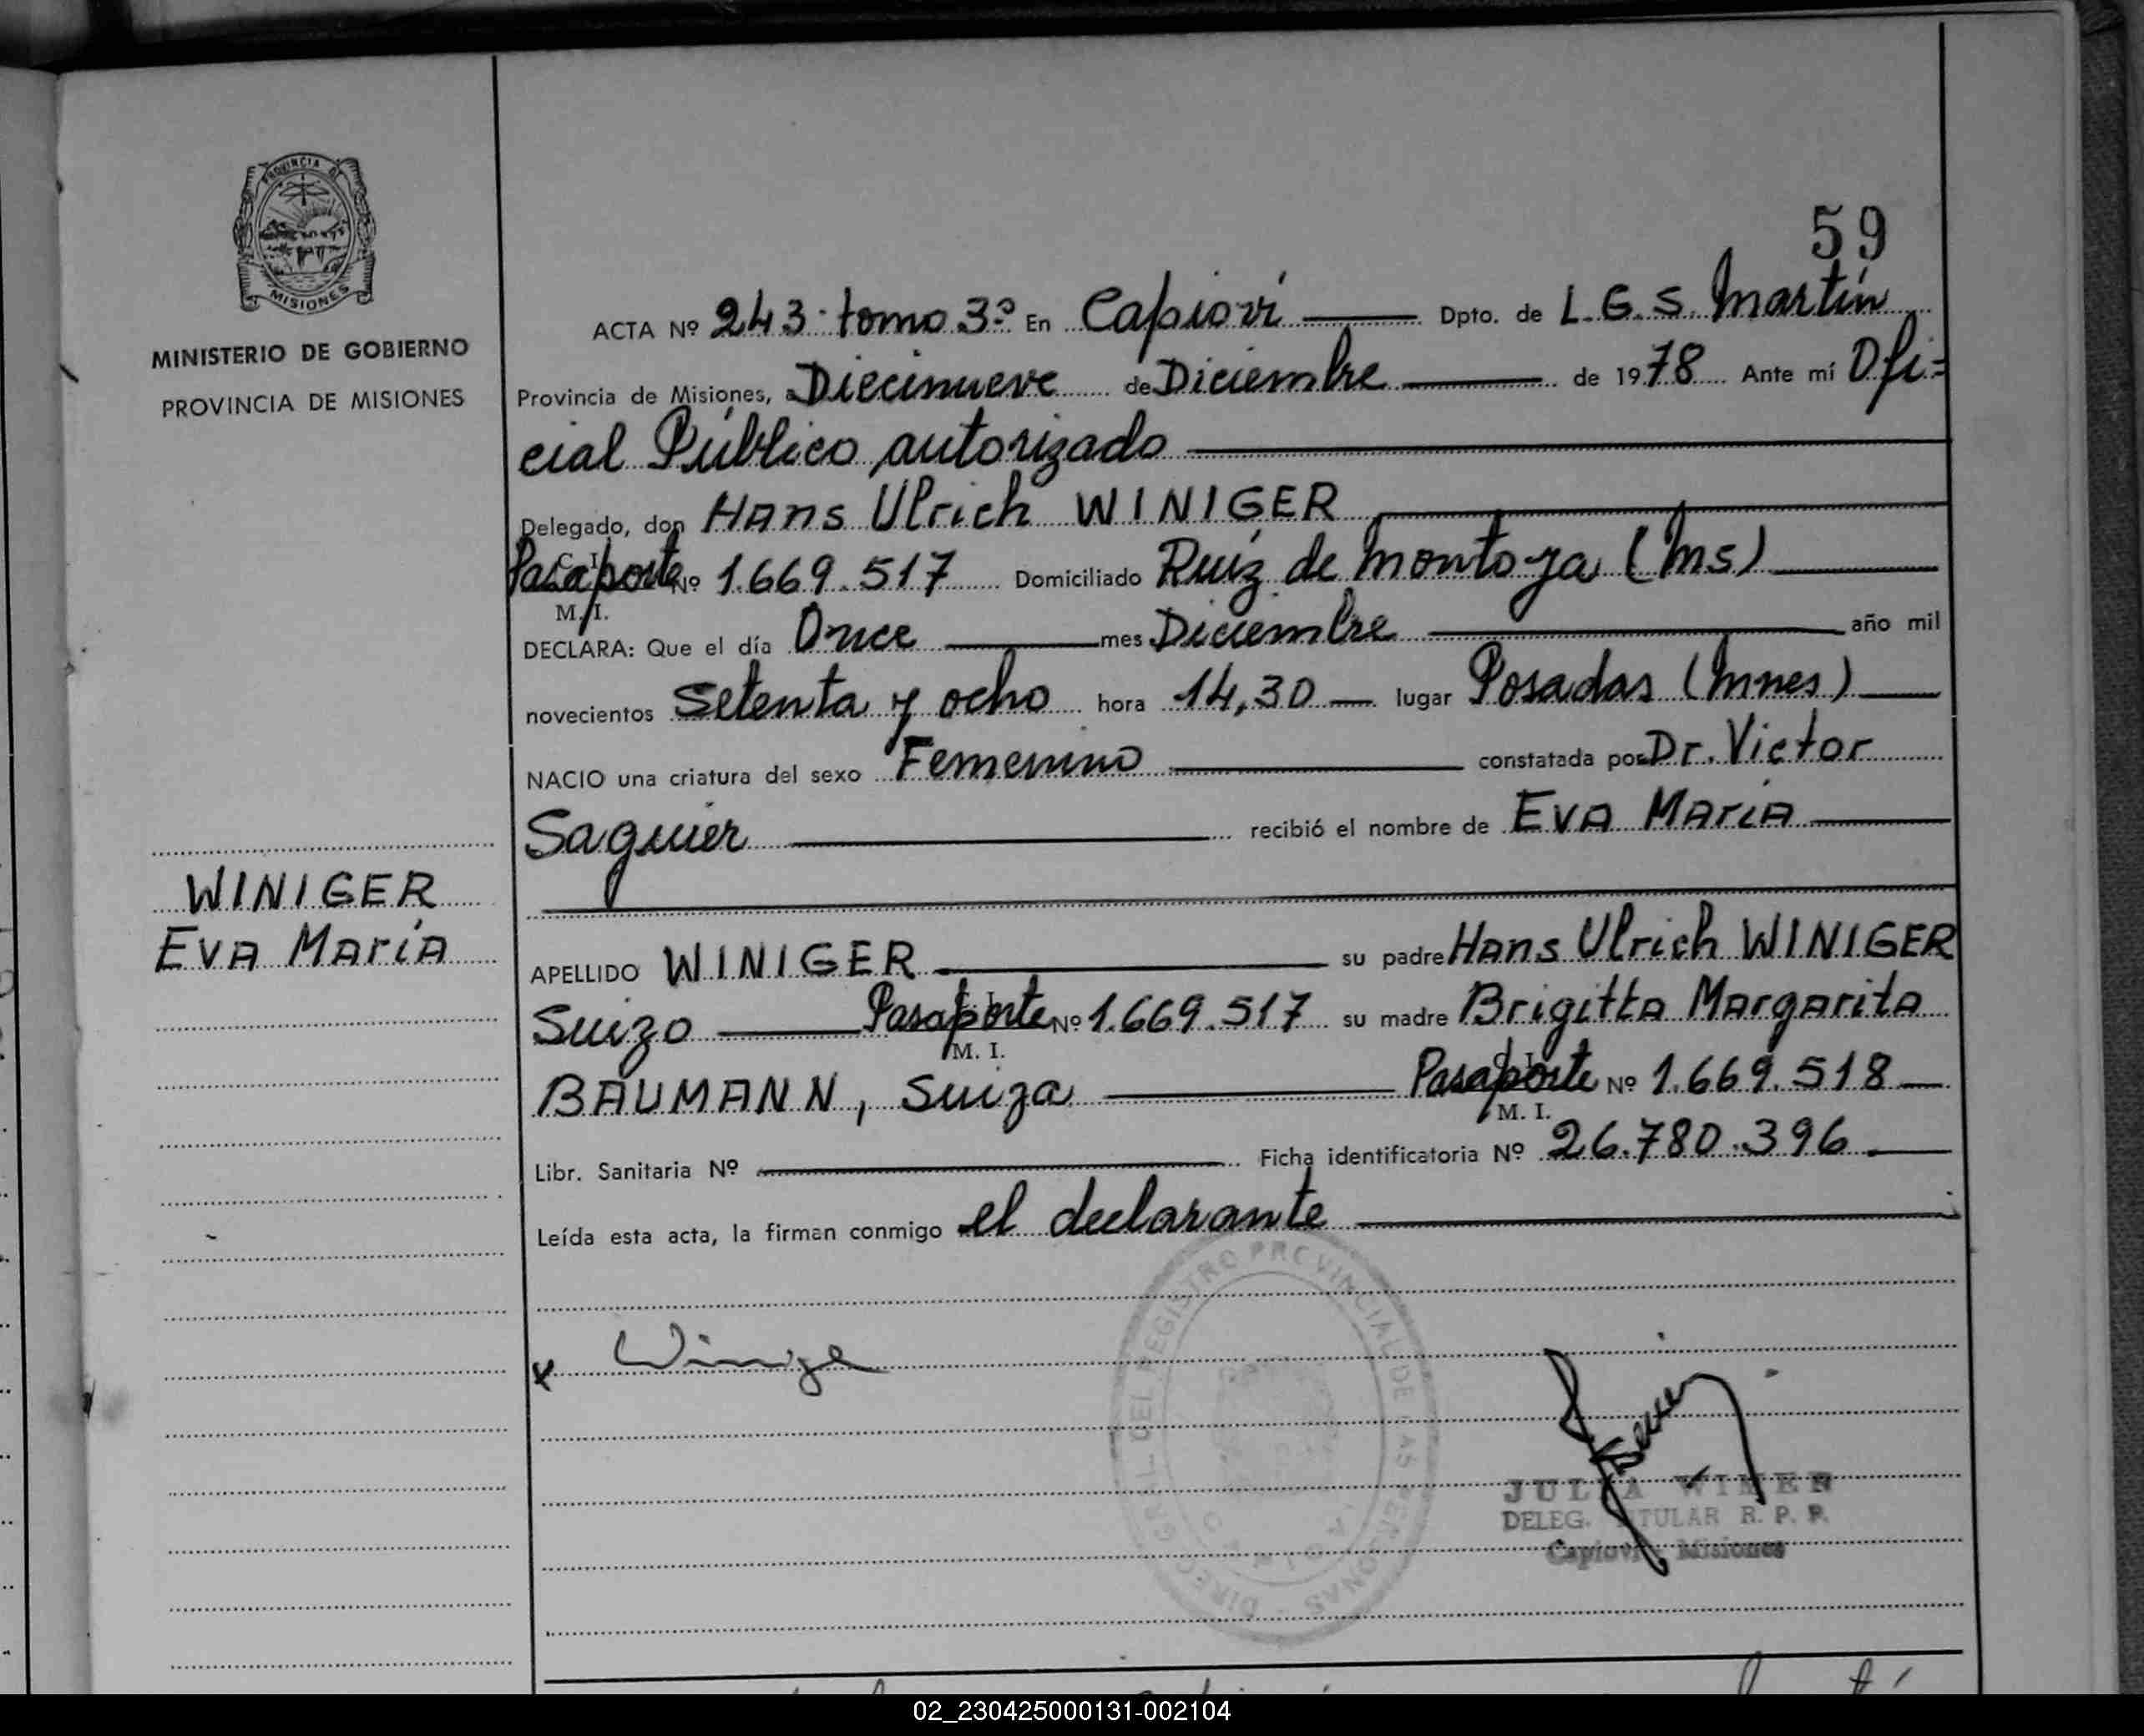 PROVINCIA DE
MISIONES
MINISTERIO DE GOBIERNO
PROVINCIA DE MISIONES
WINIGER
EVA MARÍA
59
ACTA Nº 243 tomo 3º En Capioví Dpto. de L.G.S. Martín
Provincia de Misiones, a Diecinueve de Diciembre de 1978 Ante mí Ofi=
cial Público autorizado
Delegado, don Hans Ulrich WINIGER
Pasaporte Nº 1.669.517 Domiciliado Ruíz de Montoya (Ms)
M. I.
DECLARA: Que el día Once mes Diciembre año mil
novecientos Setenta y ocho hora 14,30 lugar Posadas (Mnes)
NACIO una criatura del sexo Femenino constatada por Dr. Victor
Saguier recibió el nombre de EVA MARÍA
APELLIDO WINIGER su padre Hans Ulrich WINIGER
Suizo Pasaporte Nº 1.669.517 su madre Brigitta Margarita
M. I.
BAUMANN, Suiza Pasaporte Nº 1.669.518
M. I.
Libr. Sanitaria Nº Ficha identificatoria Nº 26.780.396
Leída esta acta, la firman conmigo el declarante
x Winiger
DIREC GRAL DEL REGISTRO PROVINCIAL DE LAS PERSONAS
JULIA WIMER
DELEG. TITULAR R. P. P.
Capioví Misiones
02_230425000131-002104